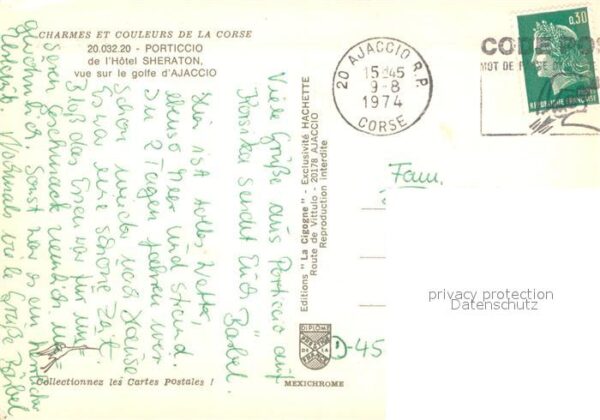 CHARMES ET COULEURS DE LA CORSE
20.032.20 - PORTICCIO
de l'Hôtel SHERATON,
vue sur le golfe d'AJACCIO
20 AJACCIO R.P.
15 45
9-8
1974
CORSE
CODE POS
MOT DE PASSE DE
0,30
REPUBLIQUE FRANÇAISE
Viele Grüße aus Porticcio auf
Korsika sendet Euch Bärbel.
Hier ist tolles Wetter,
ebenso Meer und Strand.
In 2 Tagen fahren wir
schon wieder nach Hause
Es war eine schöne Zeit
Bloß das Essen war für
seren Geschmack
Sonst war es ein
Nochmals viele Grüße Bärbel
Editions "La Cigogne" - Exclusivité HACHETTE
Route de Vittulo - 20178 AJACCIO
Reproduction interdite
Fam.
privacy protection
Datenschutz
D-45
DIPLOME
PRESTIGE
DE LA
FRANCE
MEXICHROME
Collectionnez les Cartes Postales !